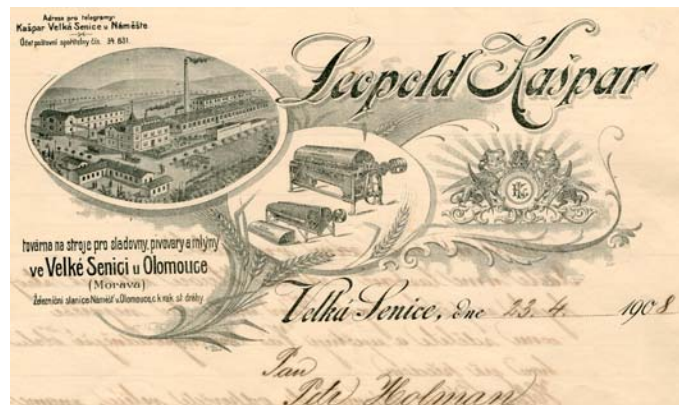 Adresa pro telegramy:
Kašpar Velká Senice u Náměště
Účet poštovní spořitelny čís. 34.831.
Leopold Kašpar
továrna na stroje pro sladovny, pivovary a mlýny
ve Velké Senici u Olomouce
(Morava)
Železniční stanice Náměšť u Olomouce, c. k. rak. st. dráhy
LK
Velká Senice, dne 23. 4. 1908
Pan
Petr Holman